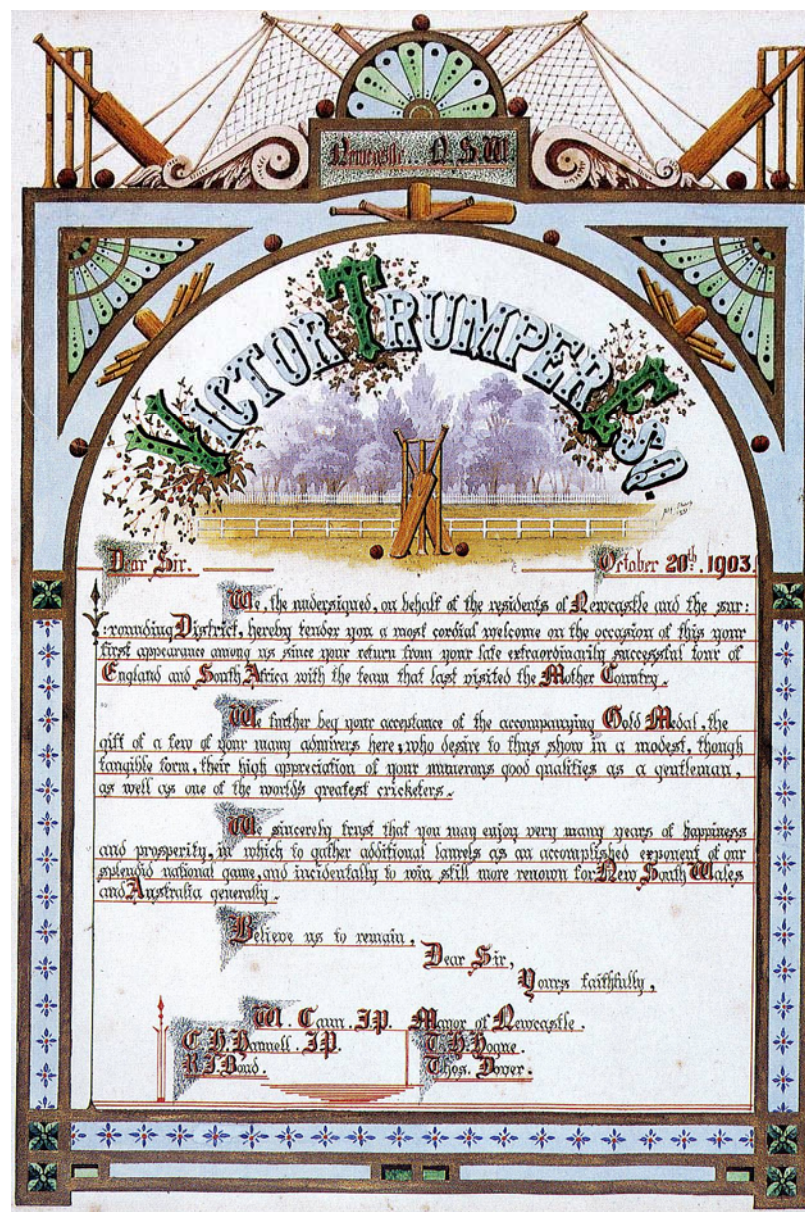 Newcastle... N.S.W.
VICTOR TRUMPER ESQ.
Dear Sir. October 20th. 1903.
We, the undersigned, on behalf of the residents of Newcastle and the sur:
:rounding District, hereby tender you a most cordial welcome on the occasion of this your
first appearance among us since your return from your late extraordinarily successful tour of
England and South Africa with the team that last visited the Mother Country.
We further beg your acceptance of the accompanying Gold Medal, the
gift of a few of your many admirers here, who desire to thus show in a modest, though
tangible form, their high appreciation of your numerous good qualities as a gentleman,
as well as one of the world's greatest cricketers.
We sincerely trust that you may enjoy very many years of happiness
and prosperity, in which to gather additional laurels as an accomplished exponent of our
splendid national game, and incidentally to win still more renown for New South Wales
and Australia generally.
Believe us to remain,
Dear Sir,
Yours faithfully,
W. Cann. J.P. Mayor of Newcastle.
C. H. Hannell. J.P. T. H. Hoane.
R. J. Bond. Thos. Dover.